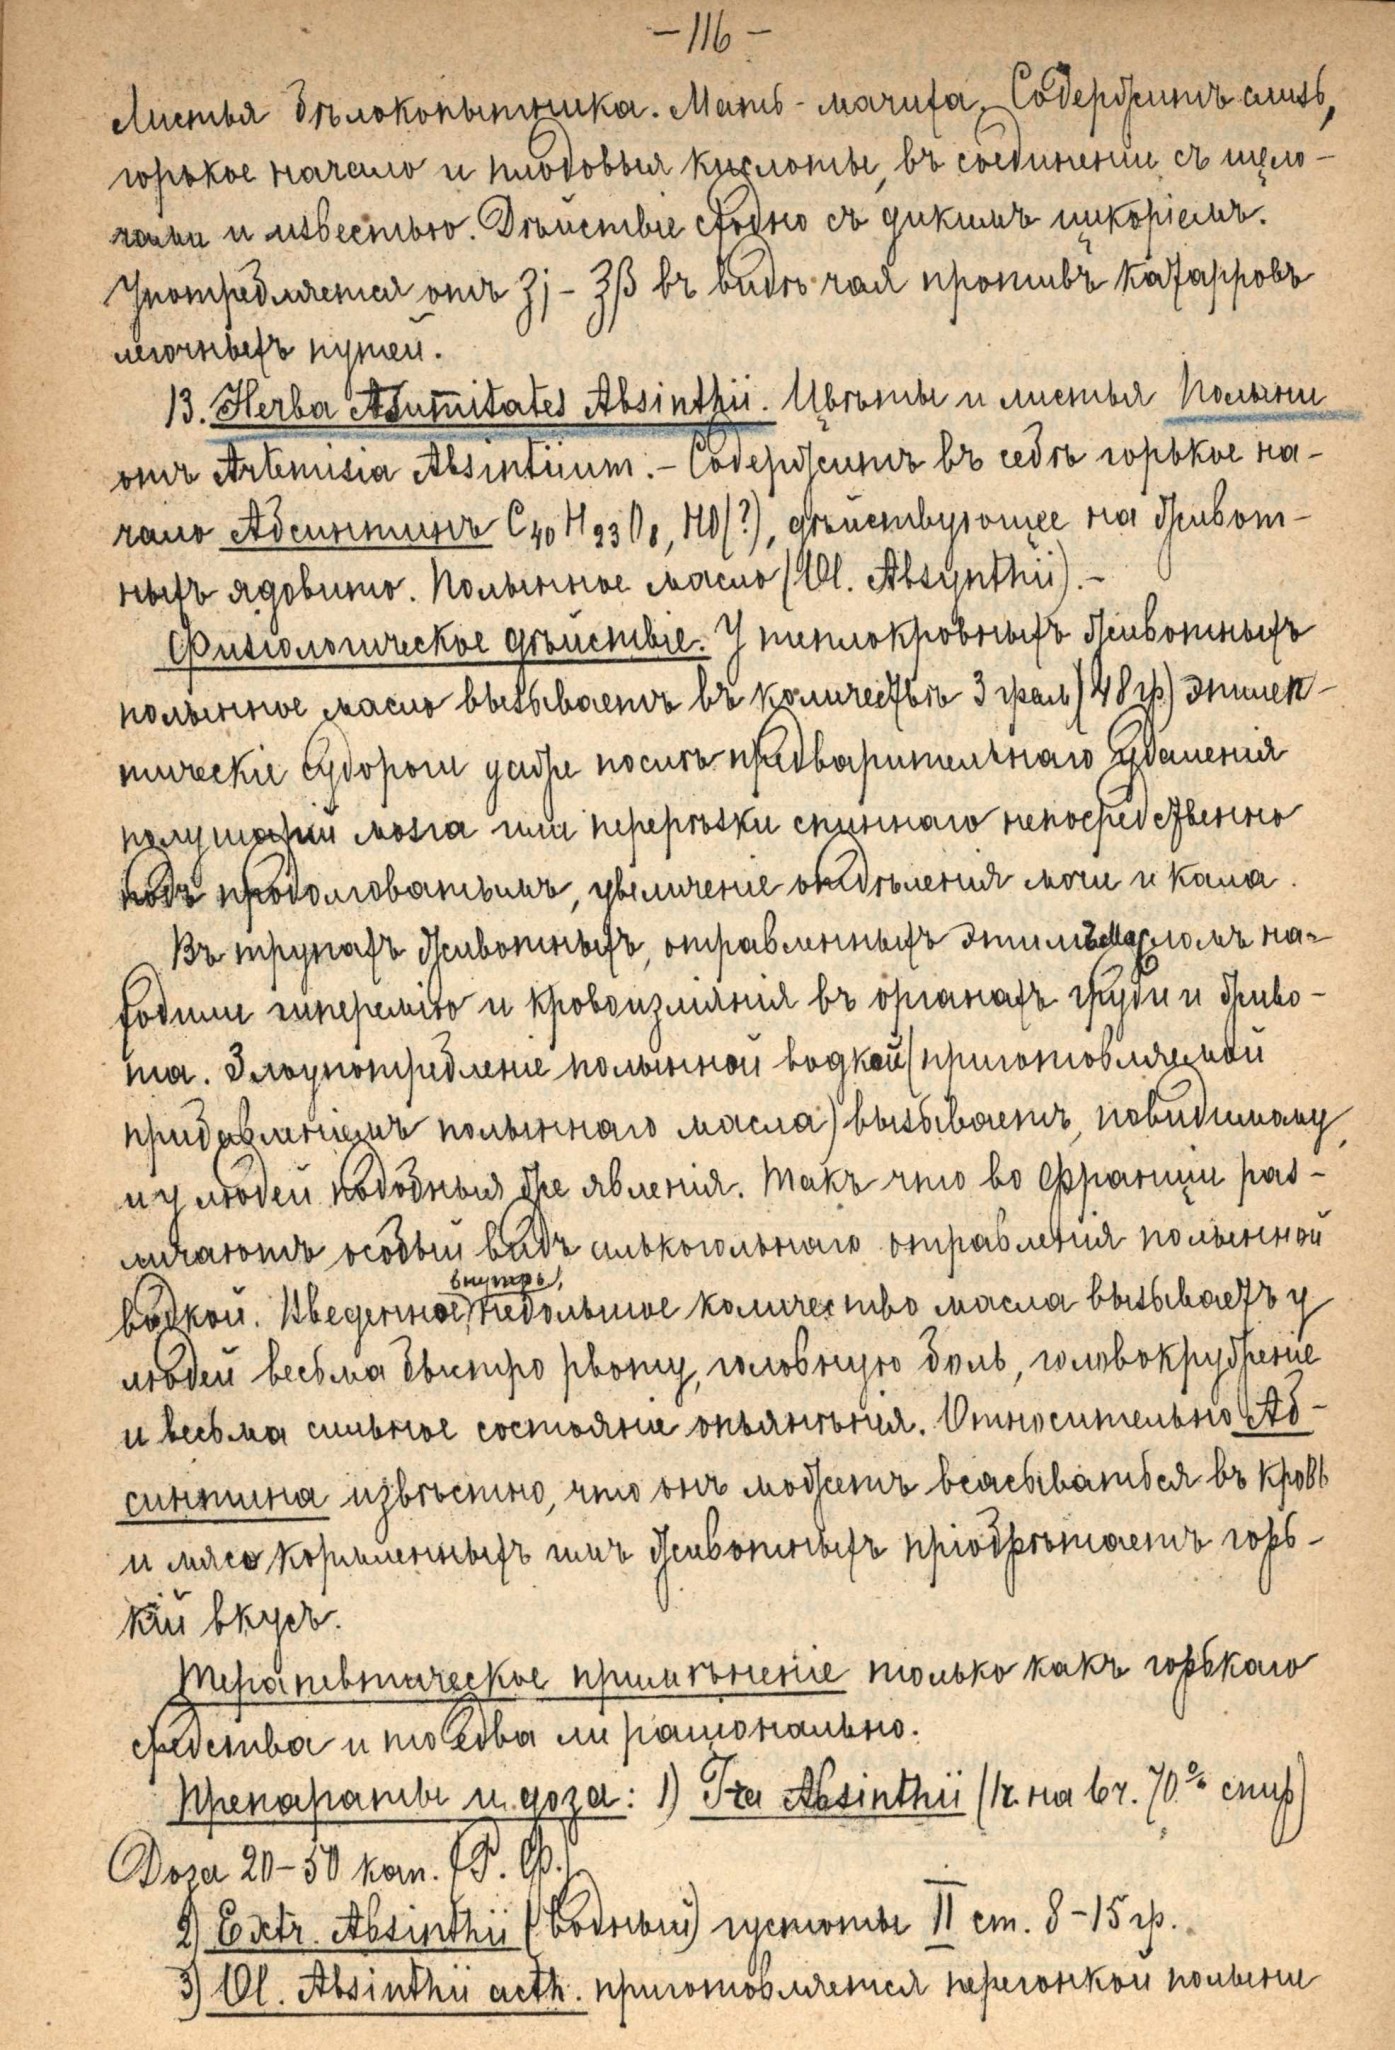 — 116 —
Листья бѣлокопытника. Мать-мачиха. Содержитъ слизь,
горькое начало и плодовыя кислоты, въ соединеніи съ щело-
чами и известью. Дѣйствіе сходно съ дикимъ цикоріемъ.
Употребляется отъ ʒj – ʒβ въ видѣ чая противъ катарровъ
легочныхъ путей.
13. Herba Asumitates Absinthii. Цвѣты и листья Полыни
отъ Artemisia Absintiium. – Содержитъ въ себѣ горькое на-
чало Абсинтинъ C40 H23 O8, HO(?), дѣйствующее на живот-
ныхъ ядовито. Полынное масло (Ol. Absynthii). –
Физіологическое дѣйствіе. У теплокровныхъ животныхъ
полынное масло вызываетъ въ количествѣ 3 грам (48 гр) эпилеп-
тическіе судороги даже послѣ предварительнаго удаленія
полушарій мозга или перерѣзки спиннаго непосредственно
подъ продолговатымъ, увеличеніе отдѣленія мочи и кала.
Въ трупахъ животныхъ, отравленныхъ этимъ масломъ на-
ходили гиперемію и кровоизліянія въ органахъ груди и живо-
та. Злоупотребленіе полынной водкой (приготовляемой
прибавленіемъ полыннаго масла) вызываетъ, повидимому,
и у людей подобныя же явленія. Такъ что во Франціи раз-
личаютъ особый видъ алькогольнаго отравленія полынной
водкой. Введенное внутрь, небольшое количество масла вызываетъ у
людей весьма быстро рвоту, головную боль, головокруженіе
и весьма сильное состояніе опьянѣнія. Относительно Аб-
синтина извѣстно, что онъ можетъ всасываться въ кровь
и мясо кормленныхъ имъ животныхъ пріобрѣтаетъ горь-
кій вкусъ.
Терапевтическое примѣненіе только какъ горькаго
средства и то едва ли раціонально.
Препараты и доза: 1) Tra Absinthii (1ч. на 6ч. 70% спир)
Доза 20–50 кап. (Р. Ф.)
2) Extr. Absinthii (водный) густоты II ст. 8–15 гр.
3) Ol. Absinthii aeth. приготовляется перегонкой полыни